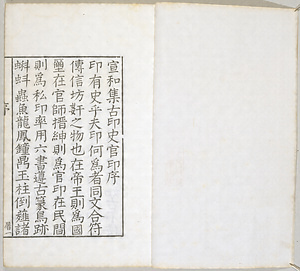 宣和集古印史官印序
印有史乎夫印何爲者同文合符
傳信坊奸之物也在帝王則爲國
璽在官師搢紳則爲官印在民間
則爲私印率用六書遵古篆鳥跡
蝌蚪蟲魚龍鳳鐘鼎玉柱倒薤諸
序